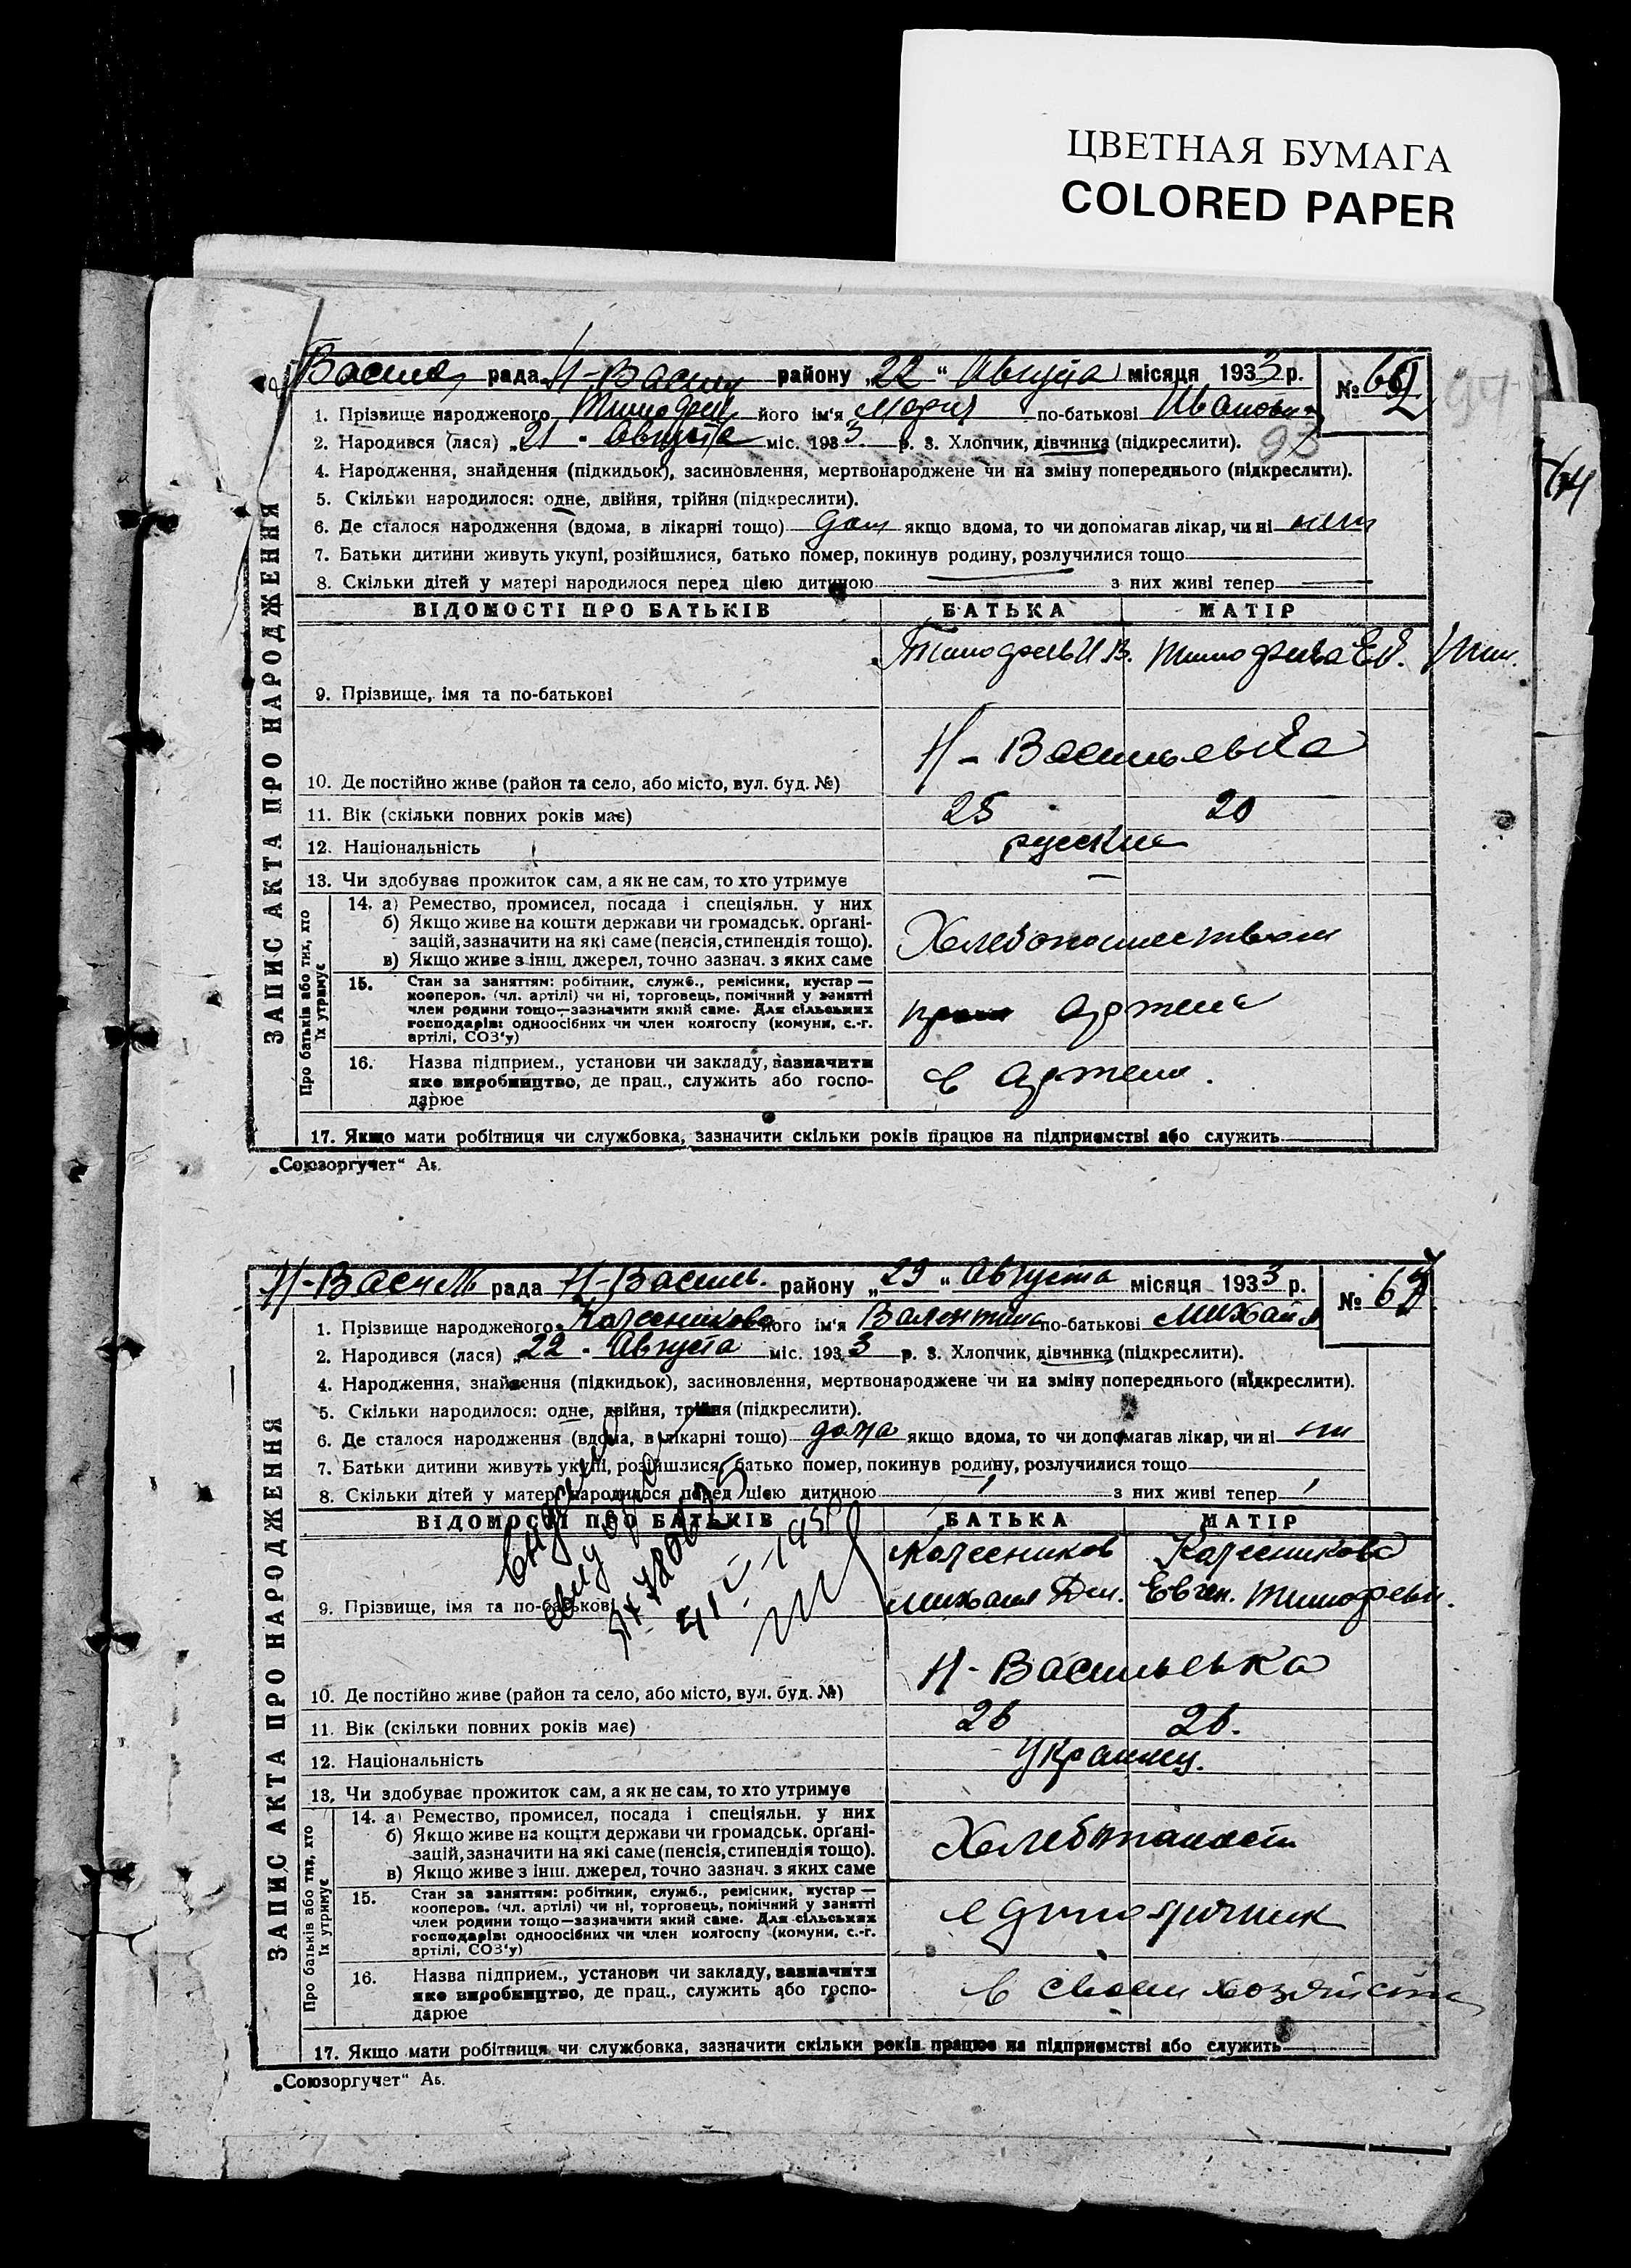 ЦВЕТНАЯ БУМАГА
COLORED PAPER
рада Н-Васил району „22“ Августа місяця 1933 р. №
1. Прізвище народженого його ім'я Мария по-батькові Ивановна
2. Народився (лася) „21 - Августа міс. 1933 р. 3. Хлопчик, дівчинка (підкреслити).
4. Народження, знайдення (підкидьок), засиновлення, мертвонароджене чи на зміну попереднього (підкреслити).
5. Скільки народилося: одне, двійня, трійня (підкреслити).
6. Де сталося народження (вдома, в лікарні тощо) якщо вдома, то чи допомагав лікар, чи ні нет
7. Батьки дитини живуть укупі, розійшлися, батько помер, покинув родину, розлучилися тощо
8. Скільки дітей у матері народилося перед цією дитиною з них живі тепер
ВІДОМОСТІ ПРО БАТЬКІВ БАТЬКА МАТІР
9. Прізвище, імя та по-батькові
10. Де постійно живе (район та село, або місто, вул. буд. №) Н-Васильевка
11. Вік (скільки повних років має) 25 20
12. Національність русские
13. Чи здобуває прожиток сам, а як не сам, то хто утримує
ЗАПИС АКТА ПРО НАРОДЖЕННЯ
Про батьків або тих, хто їх утримує
14. а) Ремество, промисел, посада і спеціяльн. у них
б) Якщо живе на кошти держави чи громадськ. орґані-
зацій, зазначити на які саме (пенсія, стипендія тощо).
в) Якщо живе з інш. джерел, точно зазнач. з яких саме
15. Стан за заняттям: робітник, служб., ремісник, кустар —
кооперов. (чл. артілі) чи ні, торговець, помічний у занятті
член родини тощо—зазначити який саме. Для сільських
господарів: одноосібних чи член колгоспу (комуни, с.-г.
артілі, СОЗ'у)
16. Назва підприєм., установи чи закладу, зазначити
яке виробництво, де прац., служить або госпо-
дарює
17. Якщо мати робітниця чи службовка, зазначити скільки років працює на підприємстві або служить
„Союзоргучет“ Аь.
Н-Василь рада Н-Василь. району „29“ Августа місяця 1933 р. №
1. Прізвище народженого Колесникова його ім'я Валентина по-батькові Михайл
2. Народився (лася) „22 - Августа міс. 1933 р. 3. Хлопчик, дівчинка (підкреслити).
4. Народження, знайдення (підкидьок), засиновлення, мертвонароджене чи на зміну попереднього (підкреслити).
5. Скільки народилося: одне, двійня, трійня (підкреслити).
6. Де сталося народження (вдома, в лікарні тощо) дома якщо вдома, то чи допомагав лікар, чи ні
7. Батьки дитини живуть укупі, розійшлися, батько помер, покинув родину, розлучилися тощо
8. Скільки дітей у матері народилося перед цією дитиною 1 з них живі тепер 1
ВІДОМОСТІ ПРО БАТЬКІВ БАТЬКА МАТІР
Колесников Колесникова
Михаил Дм. Евген. Тимофеевн.
9. Прізвище, імя та по-батькові
10. Де постійно живе (район та село, або місто, вул. буд. №) Н-Васильевка
11. Вік (скільки повних років має) 26 26.
12. Національність Украинц.
13. Чи здобуває прожиток сам, а як не сам, то хто утримує
ЗАПИС АКТА ПРО НАРОДЖЕННЯ
Про батьків або тих, хто їх утримує
14. а) Ремество, промисел, посада і спеціяльн. у них
б) Якщо живе на кошти держави чи громадськ. орґані-
зацій, зазначити на які саме (пенсія, стипендія тощо).
в) Якщо живе з інш. джерел, точно зазнач. з яких саме
15. Стан за заняттям: робітник, служб., ремісник, кустар —
кооперов. (чл. артілі) чи ні, торговець, помічний у занятті
член родини тощо—зазначити який саме. Для сільських
господарів: одноосібних чи член колгоспу (комуни, с.-г.
артілі, СОЗ'у)
единоличник
16. Назва підприєм., установи чи закладу, зазначити
яке виробництво, де прац., служить або госпо-
дарює
в своем хозяйстве
17. Якщо мати робітниця чи службовка, зазначити скільки років працює на підприємстві або служить
„Союзоргучет“ Аь.